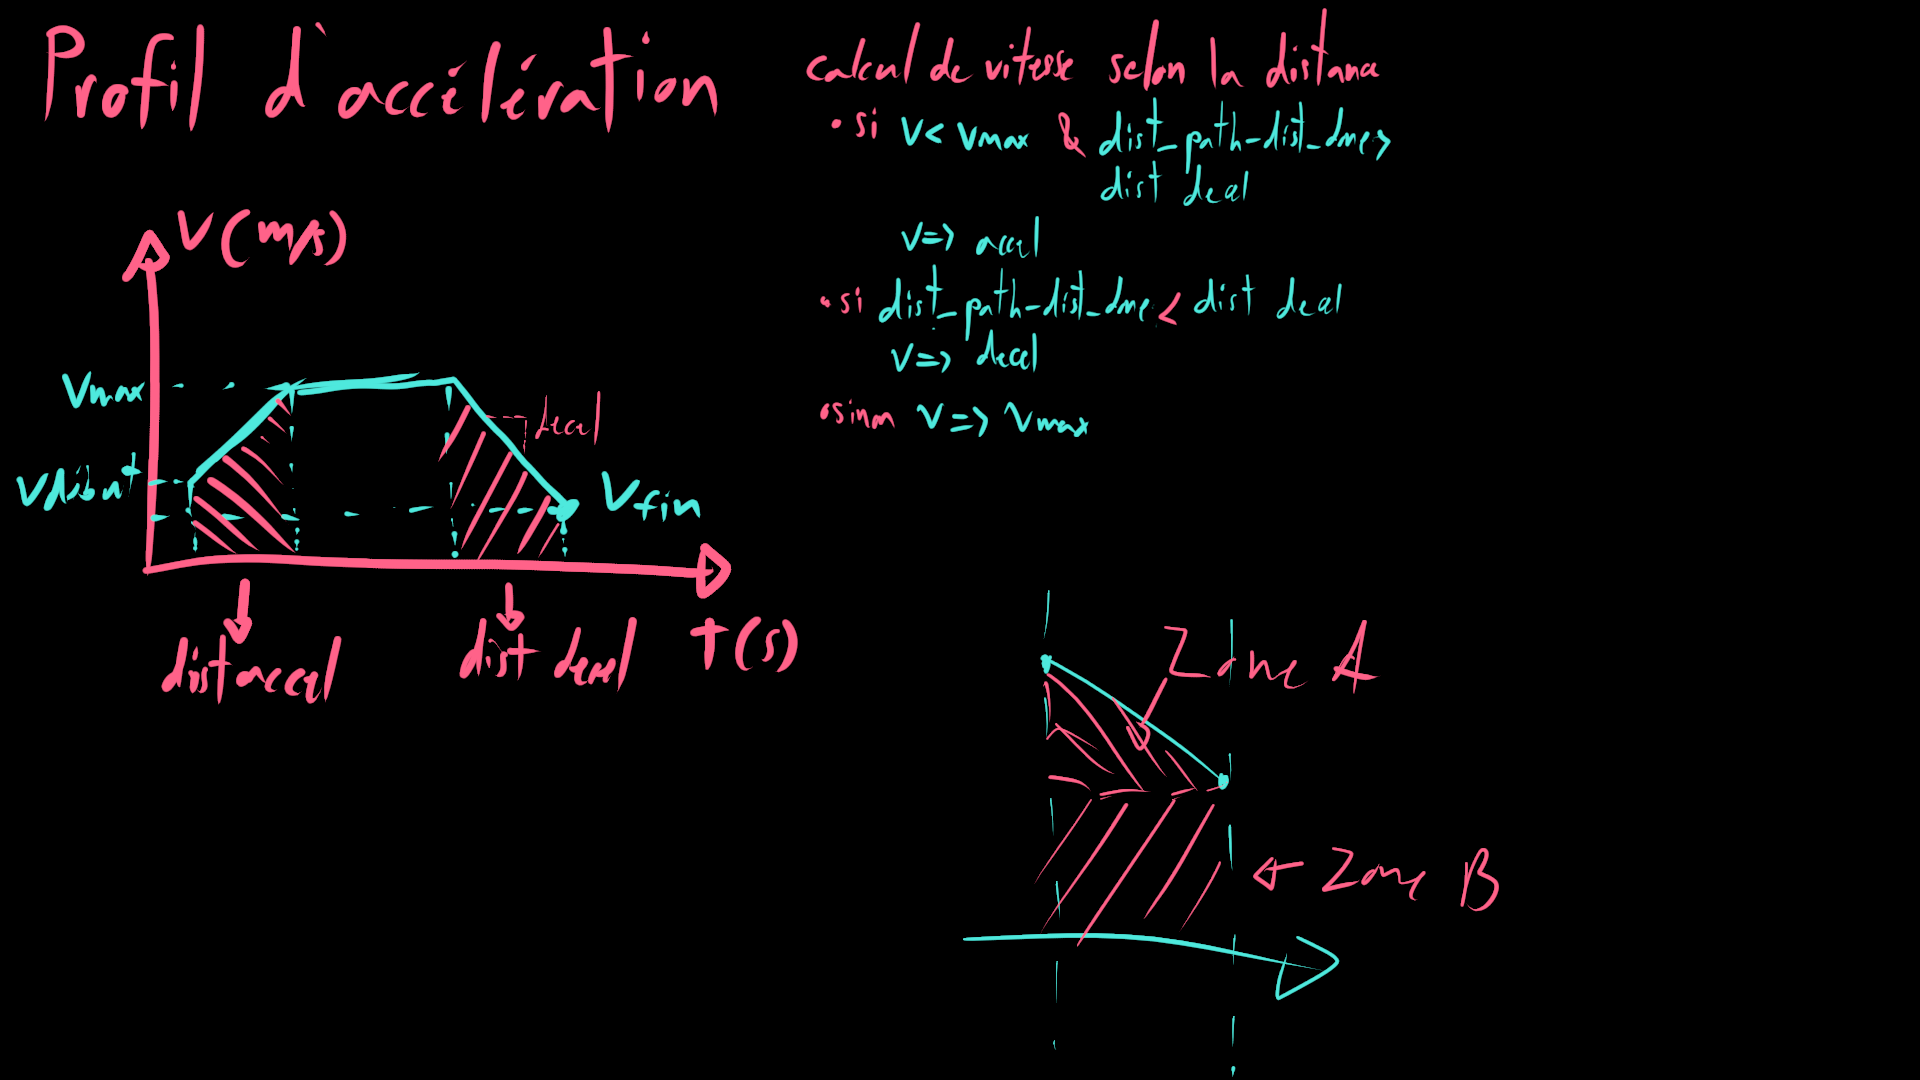 Profil d'accélération
V(m/s)
Vmax
Vdébut
decel
Vfin
dist accel
dist decel
T(s)
calcul de vitesse selon la distance
• si V < Vmax & dist_path-dist_done >
dist decel
V => accel
• si dist_path-dist_done < dist decel
V => decel
• sinon V => Vmax
Zone A
Zone B